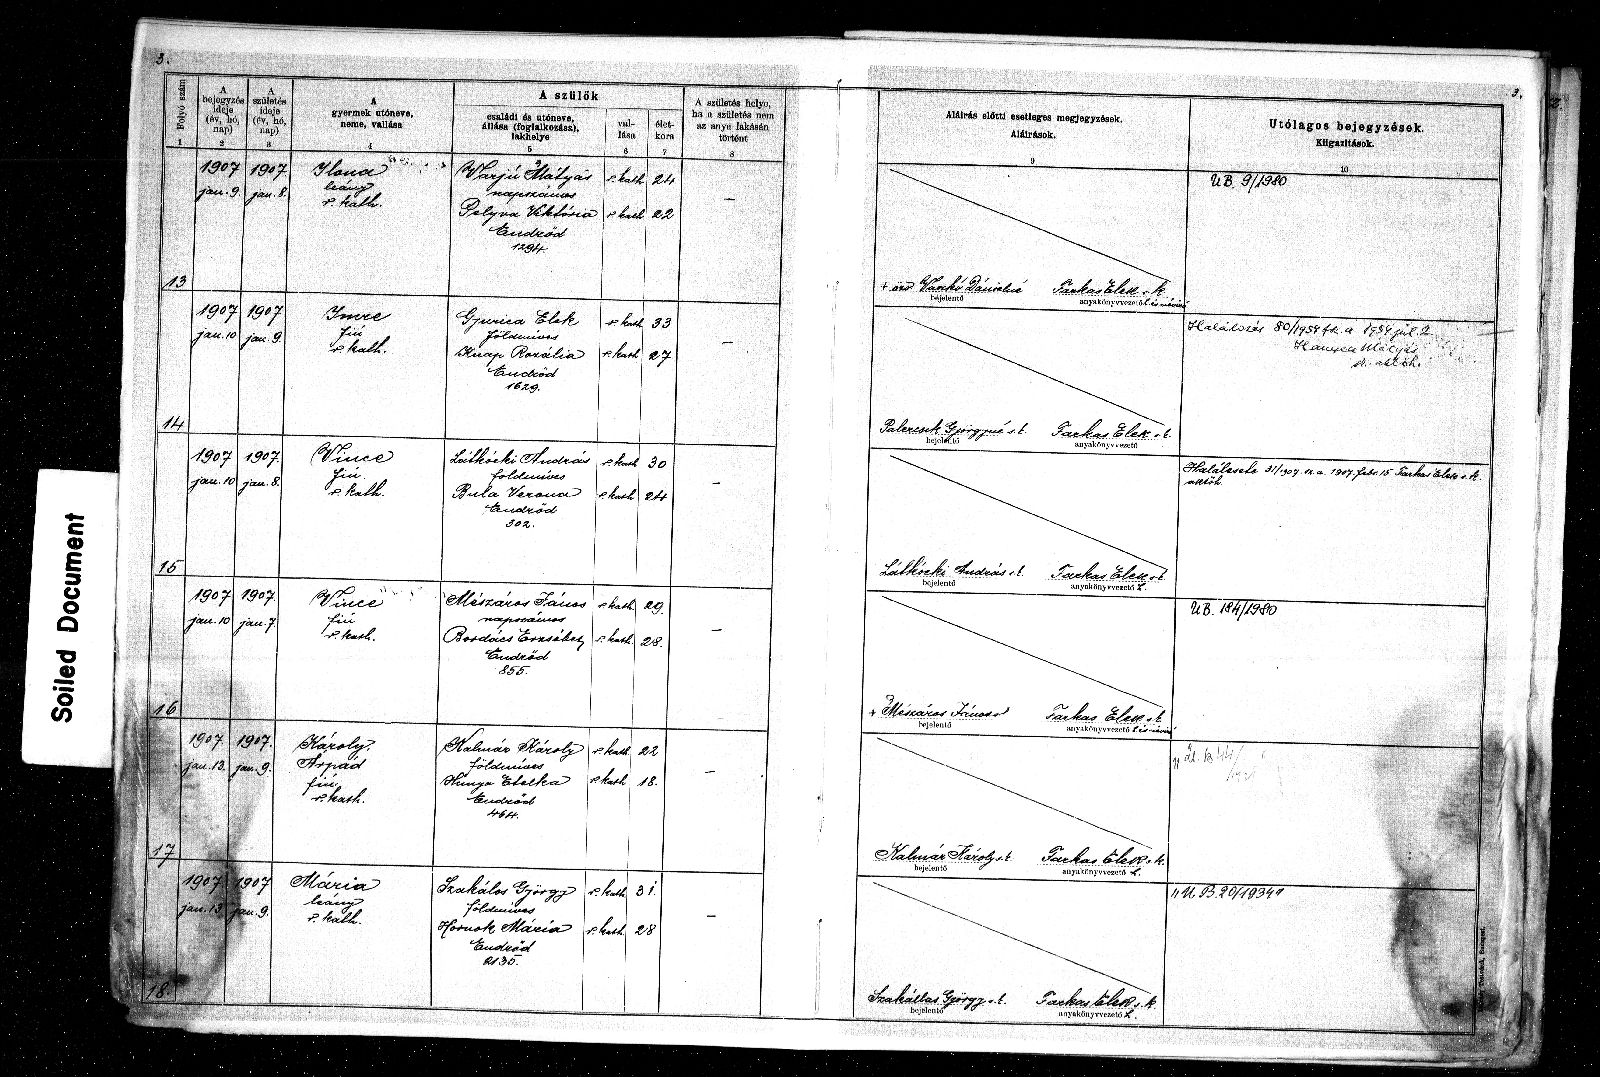 3.
3.
Folyó szám
A bejegyzés ideje (év, hó, nap)
A születés ideje (év, hó, nap)
A gyermek utóneve, neme, vallása
A szülők
családi és utóneve, állása (foglalkozása), lakhelye
vallása
életkora
A születés helye, ha a születés nem az anya lakásán történt
Aláírás előtti esetleges megjegyzések.
Aláírások.
Utólagos bejegyzések.
Kiigazítások.
1 2 3 4 5 6 7 8 9 10
13
1907 jan. 9
1907 jan. 8.
Ilona
leány
r. kath.
Varjú Mátyás r. kath. 24
napszámos
Pelyva Viktória r. kath. 22
Endrőd
1294.
—
Vaskó Dánielné
bejelentő
Farkas Elek s. k.
anyakönyvvezető
UB. 9/1980
14
1907 jan. 10
1907 jan. 9.
Imre
fiú
r. kath.
Gyurica Elek r. kath. 33
földmíves
Knap Rozália r. kath. 27
Endrőd
1629.
—
Palercsik Györgyné s. k.
bejelentő
Farkas Elek s. k.
anyakönyvvezető
Halálozás 80/1954 fk. a 1954 júl. 2.
15
1907 jan. 10
1907. jan. 8.
Vince
fiú
r. kath.
Látkócki András r. kath. 30
földmíves
Bula Verona r. kath. 24
Endrőd
302.
—
Látkócki András s. k.
bejelentő
Farkas Elek s. k.
anyakönyvvezető
Halálesete 31/907. sz. a. 1907. febr. 15 Farkas Elek s. k.
16
1907 jan. 10
1907. jan. 7.
Vince
fiú
r. kath.
Mészáros János r. kath. 29.
napszámos
Bordács Erzsébet r. kath. 28.
Endrőd
855.
—
+ Mészáros János
bejelentő
Farkas Elek s. k.
anyakönyvvezető
UB. 184/1980
17
1907. jan. 13.
1907. jan. 9.
Károly,
Árpád
fiú
r. kath.
Kalmár Károly r. kath. 22
földmíves
Hunya Etelka r. kath. 18.
Endrőd
464.
—
Kalmár Károly s. k.
bejelentő
Farkas Elek s. k.
anyakönyvvezető
18.
1907 jan. 13.
1907 jan. 9.
Mária
leány
r. kath.
Szakálos György r. kath. 31.
földmíves
Hornok Mária r. kath. 28
Endrőd
2135.
—
Szakállas György s. k.
bejelentő
Farkas Elek s. k.
anyakönyvvezető
U. B. 20/1934
Soiled Document